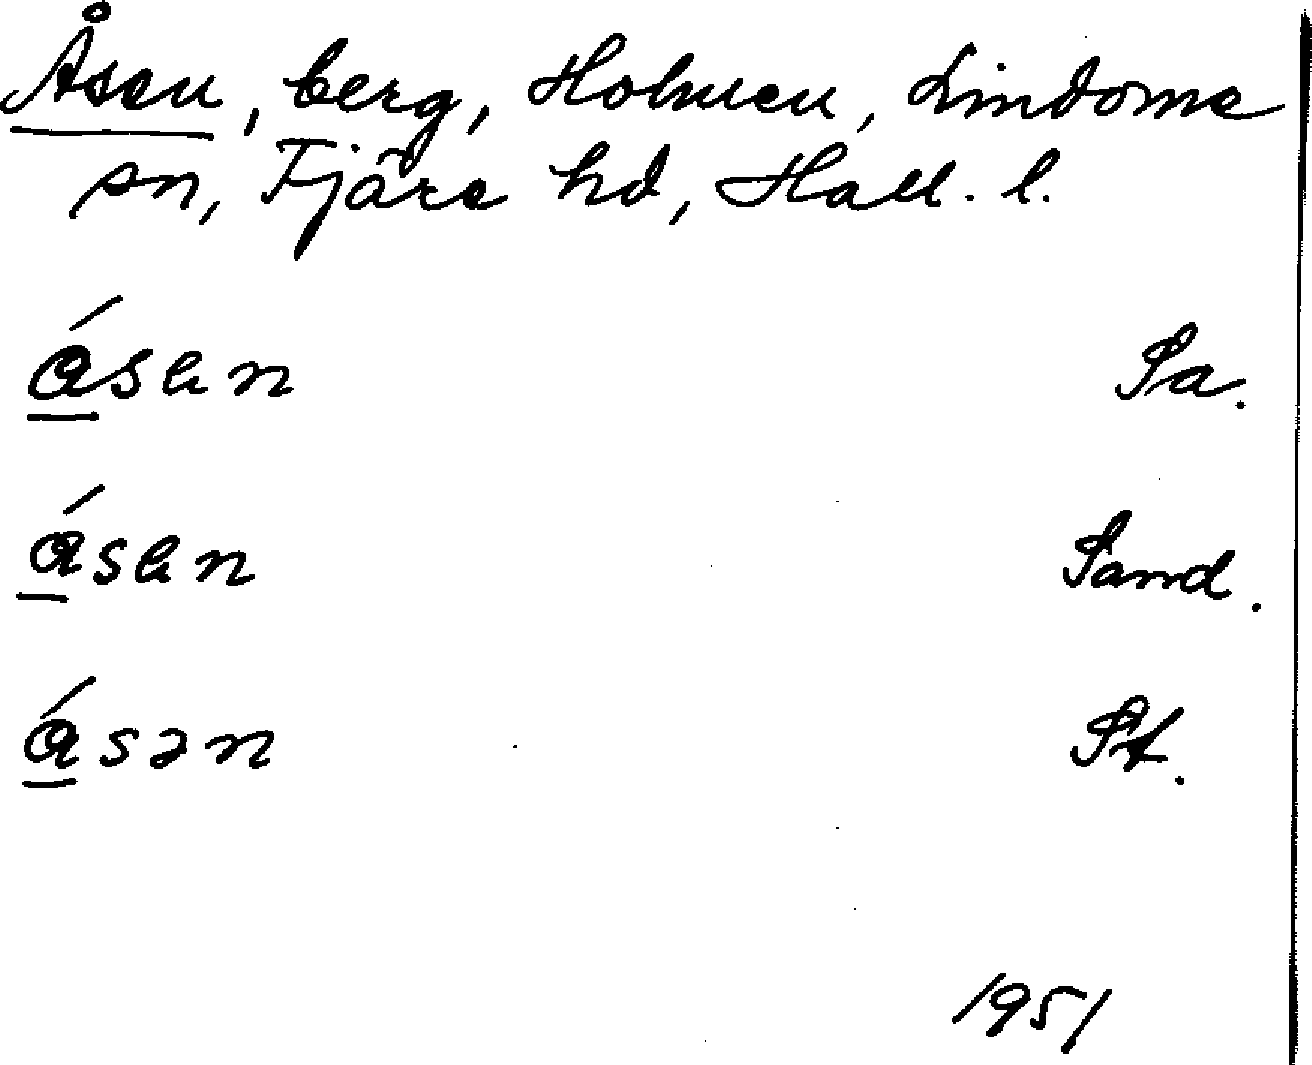 Åsen, berg, Holmen, Lindome
sn, Fjäre hd, Hall. l.
ásen Sa.
ásen Sand.
ásən St.
1951